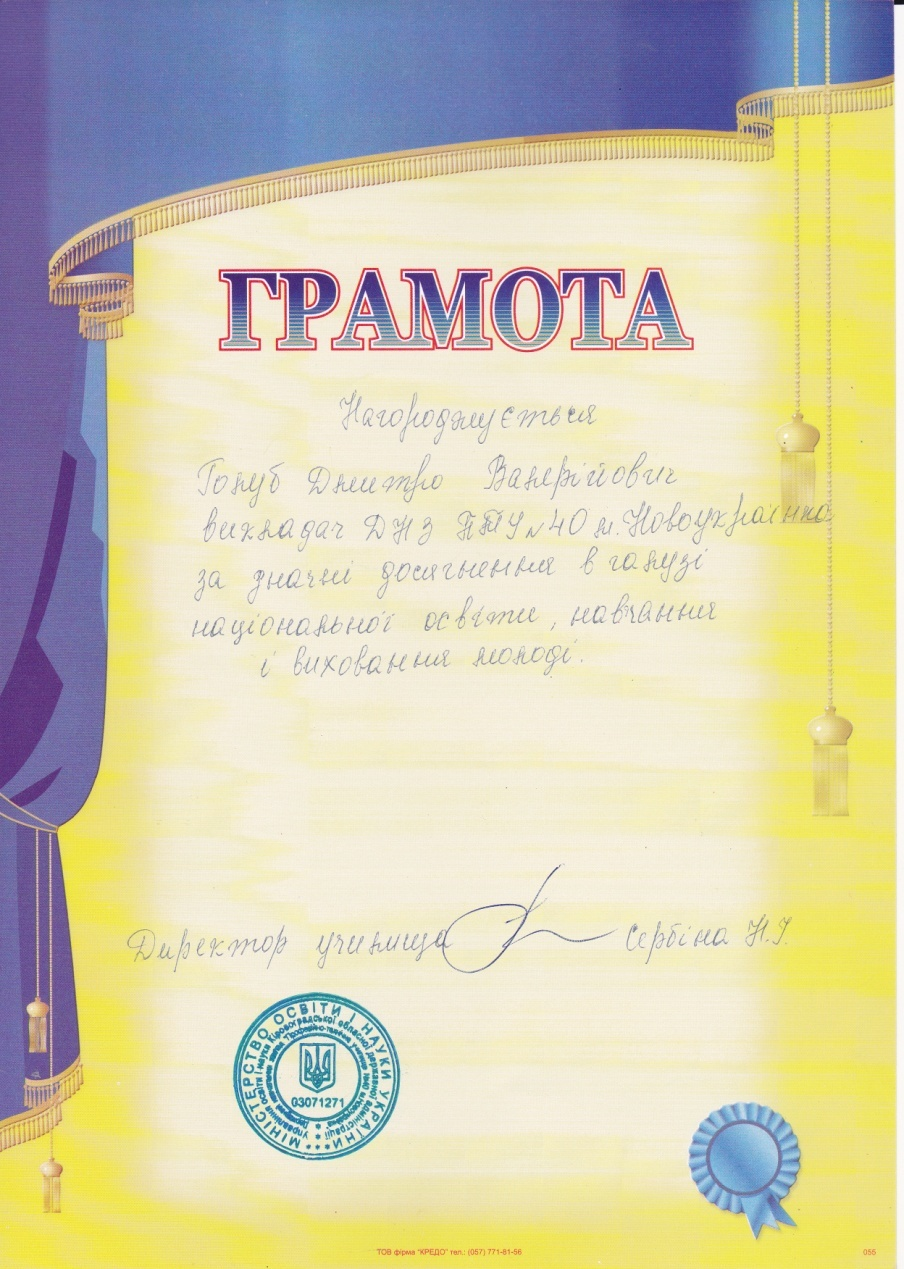 ГРАМОТА
Нагороджується
Голуб Дмитро Валерійович
викладач ДНЗ ПТУ №40 м. Новоукраїнка
за значні досягнення в галузі
національної освіти, навчання
і виховання молоді.
Директор училища Сербіна Н.І.
МІНІСТЕРСТВО ОСВІТИ І НАУКИ УКРАЇНИ
Управління освіти і науки Кіровоградської обласної державної адміністрації
03071271
ТОВ фірма "КРЕДО" тел.: (057) 771-81-56
055